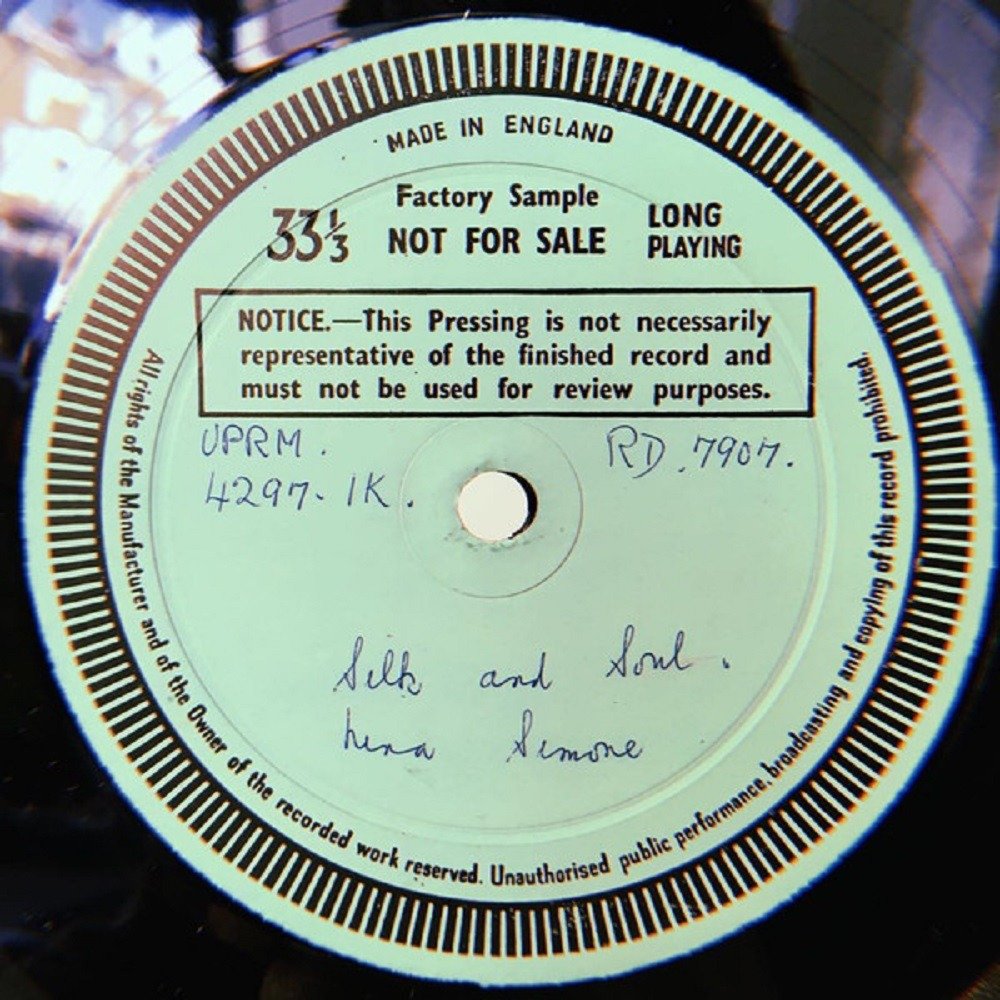 MADE IN ENGLAND
Factory Sample
33⅓ NOT FOR SALE LONG PLAYING
NOTICE.—This Pressing is not necessarily
representative of the finished record and
must not be used for review purposes.
UPRM. RD.7907.
4297-1K.
Silk and Soul.
nina Simone
All rights of the Manufacturer and of the Owner of the recorded work reserved. Unauthorised public performance, broadcasting and copying of this record prohibited.